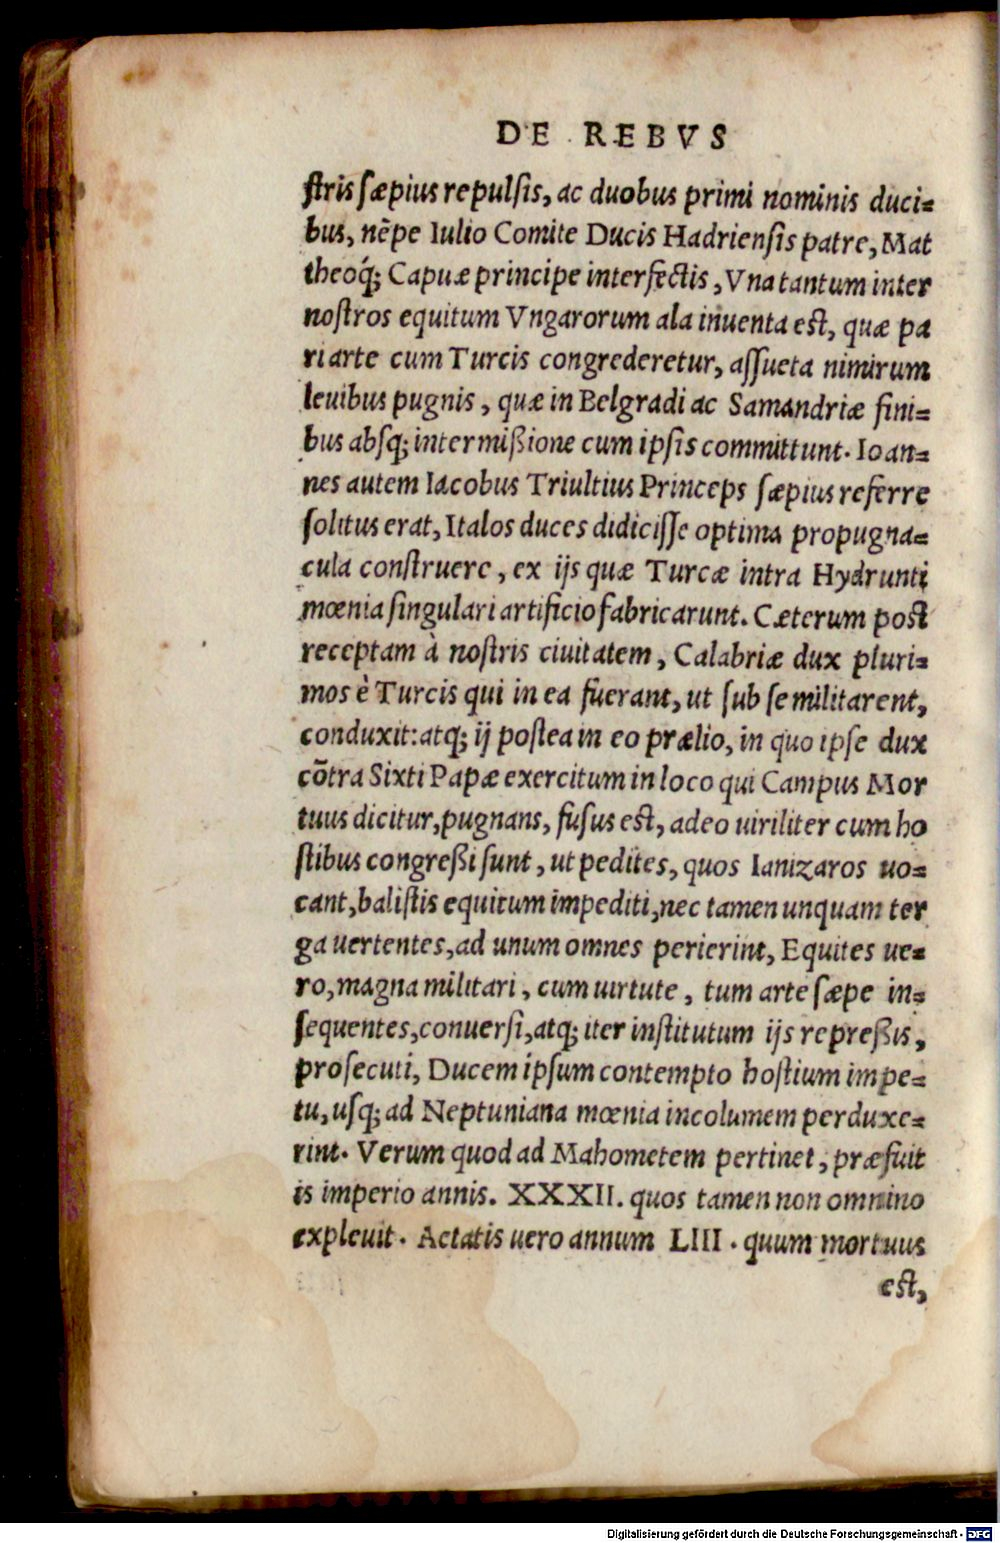 DE REBVS
ſtris ſæpius repulſis, ac duobus primi nominis duci=
bus, nẽpe Iulio Comite Ducis Hadrienſis patre, Mat
theoq́; Capuæ principe interfectis, Vna tantum inter
noſtros equitum Vngarorum ala inuenta eſt, quæ pa
ri arte cum Turcis congrederetur, aſſueta nimirum
leuibus pugnis, quæ in Belgradi ac Samandriæ fini=
bus abſq; intermißione cum ipſis committunt. Ioan=
nes autem Iacobus Triultius Princeps ſæpius referre
ſolitus erat, Italos duces didiciſſe optima propugna=
cula construere, ex ijs quæ Turcæ intra Hydrunti
mœnia ſingulari artificio fabricarunt. Cæterum poſt
receptam à noſtris ciuitatem, Calabriæ dux pluri=
mos è Turcis qui in ea fuerant, ut ſub ſe militarent,
conduxit: atq; ij poſtea in eo prælio, in quo ipſe dux
cõtra Sixti Papæ exercitum in loco qui Campus Mor
tuus dicitur, pugnans, fuſus eſt, adeo uiriliter cum ho
ſtibus congreßi ſunt, ut pedites, quos Ianizaros uo=
cant, baliſtis equitum impediti, nec tamen unquam ter
ga uertentes, ad unum omnes perierint, Equites ue=
ro, magna militari, cum uirtute, tum arte ſæpe in=
ſequentes, conuerſi, atq; iter inſtitutum ijs repreßis,
proſecuti, Ducem ipſum contempto hoſtium impe=
tu, uſq; ad Neptuniana mœnia incolumem perduxe=
rint. Verum quod ad Mahometem pertinet, præfuit
is imperio annis. XXXII. quos tamen non omnino
expleuit. Aetatis uero annum LIII. quum mortuus
eſt,
Digitalisierung gefördert durch die Deutsche Forschungsgemeinschaft - DFG